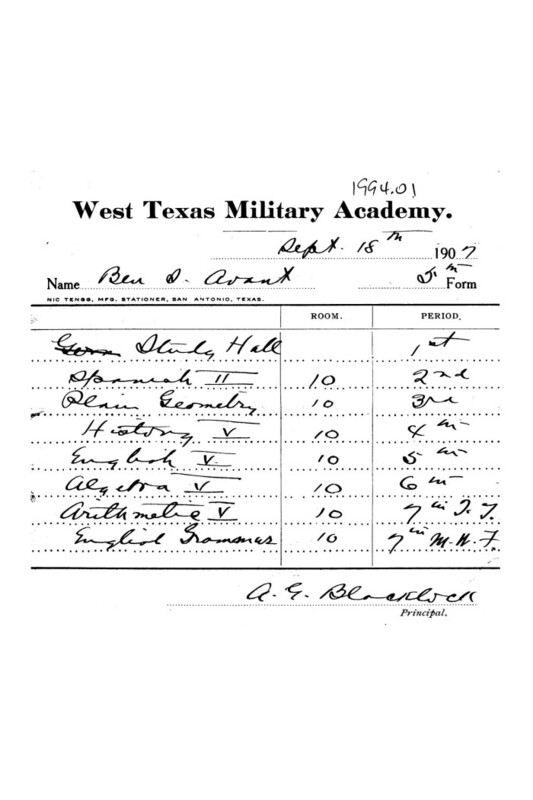 1994.01
West Texas Military Academy.
Sept. 18th 1907
Name Ben S. Avant 5th Form
NIC TENGG, MFG. STATIONER, SAN ANTONIO, TEXAS.
ROOM. PERIOD.
Study Hall 1st
Spanish II 10 2nd
Plain Geometry 10 3rd
History V 10 4th
English V 10 5th
Algebra V 10 6th
Arithmetic V 10 7th T. T.
English Grammar 10 7th M.W.F.
A. G. Blacklock
Principal.